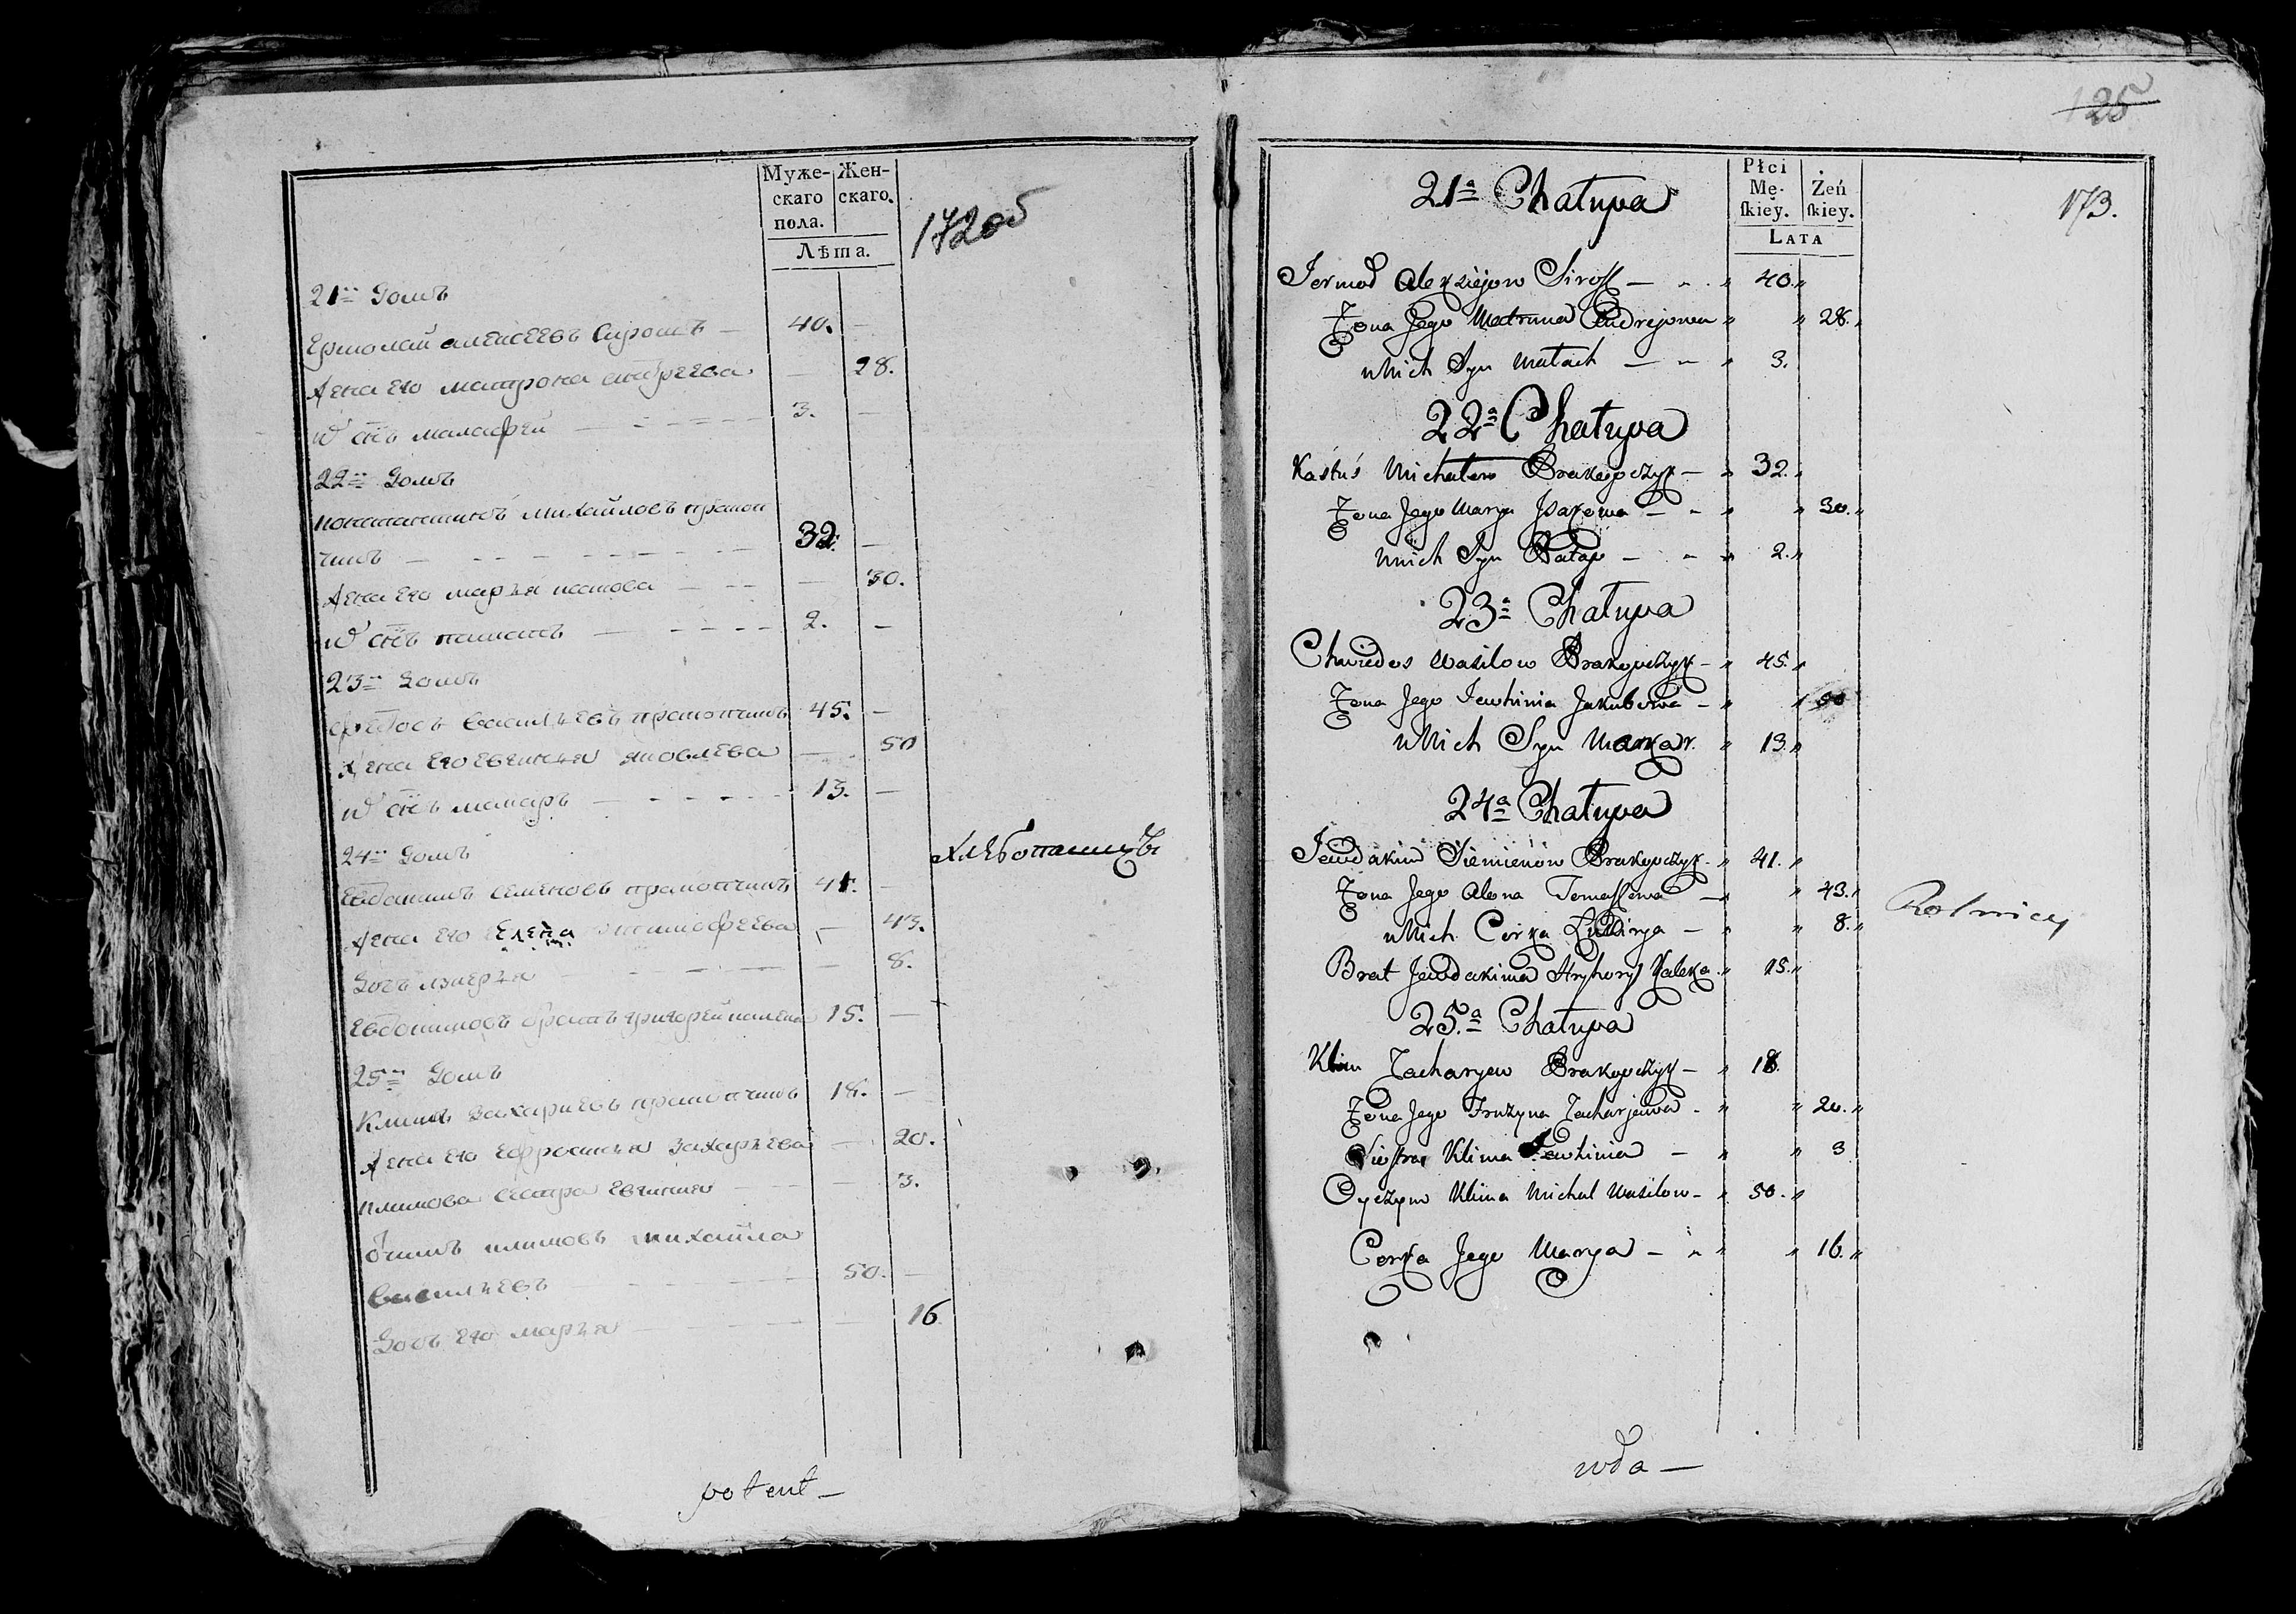 Муже-
скаго
пола.
Жен-
скаго.
Лѣта.
172об
21й Домъ
Ермолай алеѯеевъ Сиротъ — 40. —
Жена его матрона андреева — 28.
ѿ сн҃ъ малафей — 3. —
22й Домъ
констант҃инъ михайловъ пракоп
чикъ — 32. —
Жена его марья исакова — 30.
ѿ сн҃ъ — 2. —
23й Домъ
федосъ васильевъ пракопчикъ 45. —
Жена его евгинья яковлева — 50
ѿ сн҃ъ макаръ — 13. —
24й Домъ
евдакимъ семеновъ пракопчикъ 41. —
хлебопашцы
Жена его Елена тимофеева — 43.
Дочь — 8.
евдакимовъ братъ григорей калека 15. —
25й Домъ
Климъ Захариевъ пракопчикъ 18. —
Жена его ефросинья Захарьева — 20.
климова сестра евгинья — 3.
очимъ климовъ михайла
васильевъ — 50. —
Дочь его марья — 16
potent —
125
173.
21ª Chałupa
Płci
Mę-
ſkiey.
Żeń
ſkiey.
LATA
Jermoł Alexiejow Sirotł — " 40."
Żona Jego Matruna Andrejowa " " 28."
u Nich Syn Małach — " 3.
22ª Chałupa
Kastuś Michałow Prakopczyk — " 32."
Żona Jego Marya Jsakowa — " " 30."
u Nich Syn Patap — " 2."
23ª Chałupa
Chwiedos Wasilow Prakopczyk — " 45."
Żona Jego Jewhinia Jakubowa — " " 50
u Nich Syn Makar. " 13."
24ª Chałupa
Jewdakim Siemienow Prakopczyk — " 41."
Żona Jego Alona Tomaszowa — " " 43."
u Nich Corka — " " 8."
Rolnicy
Brat Jewdakima Hryhory Kaleka " 15."
25.ª Chałupa
Klim Zacharyew Prakopczyk — " 18.
Żona Jego Fruzyna Zacharjewa — " " 20."
Siostra Klima Jewhinia — " " 3
Oyczym Klima Michał Wasilow — " 50."
Corka Jego Marya — " " 16."
wda —